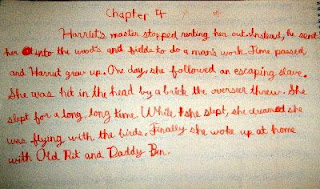 Chapter 4
Harriet's master stopped renting her out. Instead, he sent
her into the woods and fields to do a man's work. Time passed
and Harriet grew up. One day, she followed an escaping slave.
She was hit in the head by a brick the overseer threw. She
slept for a long, long time. While she slept, she dreamed she
was flying with the birds. Finally she woke up at home
with Old Rit and Daddy Ben.